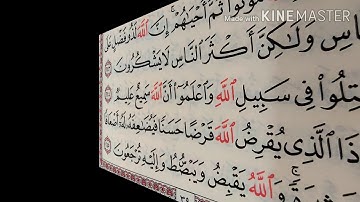 Made with KINEMASTER
مُوتُوا۟ ثُمَّ أَحْيَٰهُمْ ۚ إِنَّ ٱللَّهَ لَذُو فَضْلٍ عَلَى
ـاسِ وَلَٰكِنَّ أَكْثَرَ ٱلنَّاسِ لَا يَشْكُرُونَ
ـتِلُوا۟ فِى سَبِيلِ ٱللَّهِ وَٱعْلَمُوٓا۟ أَنَّ ٱللَّهَ سَمِيعٌ عَلِيمٌ
ذَا ٱلَّذِى يُقْرِضُ ٱللَّهَ قَرْضًا حَسَنًا فَيُضَٰعِفَهُۥ لَهُۥٓ أَضْعَافًا
ـثِيرَةً ۚ وَٱللَّهُ يَقْبِضُ وَيَبْصُۜطُ وَإِلَيْهِ تُرْجَعُونَ
٣٩